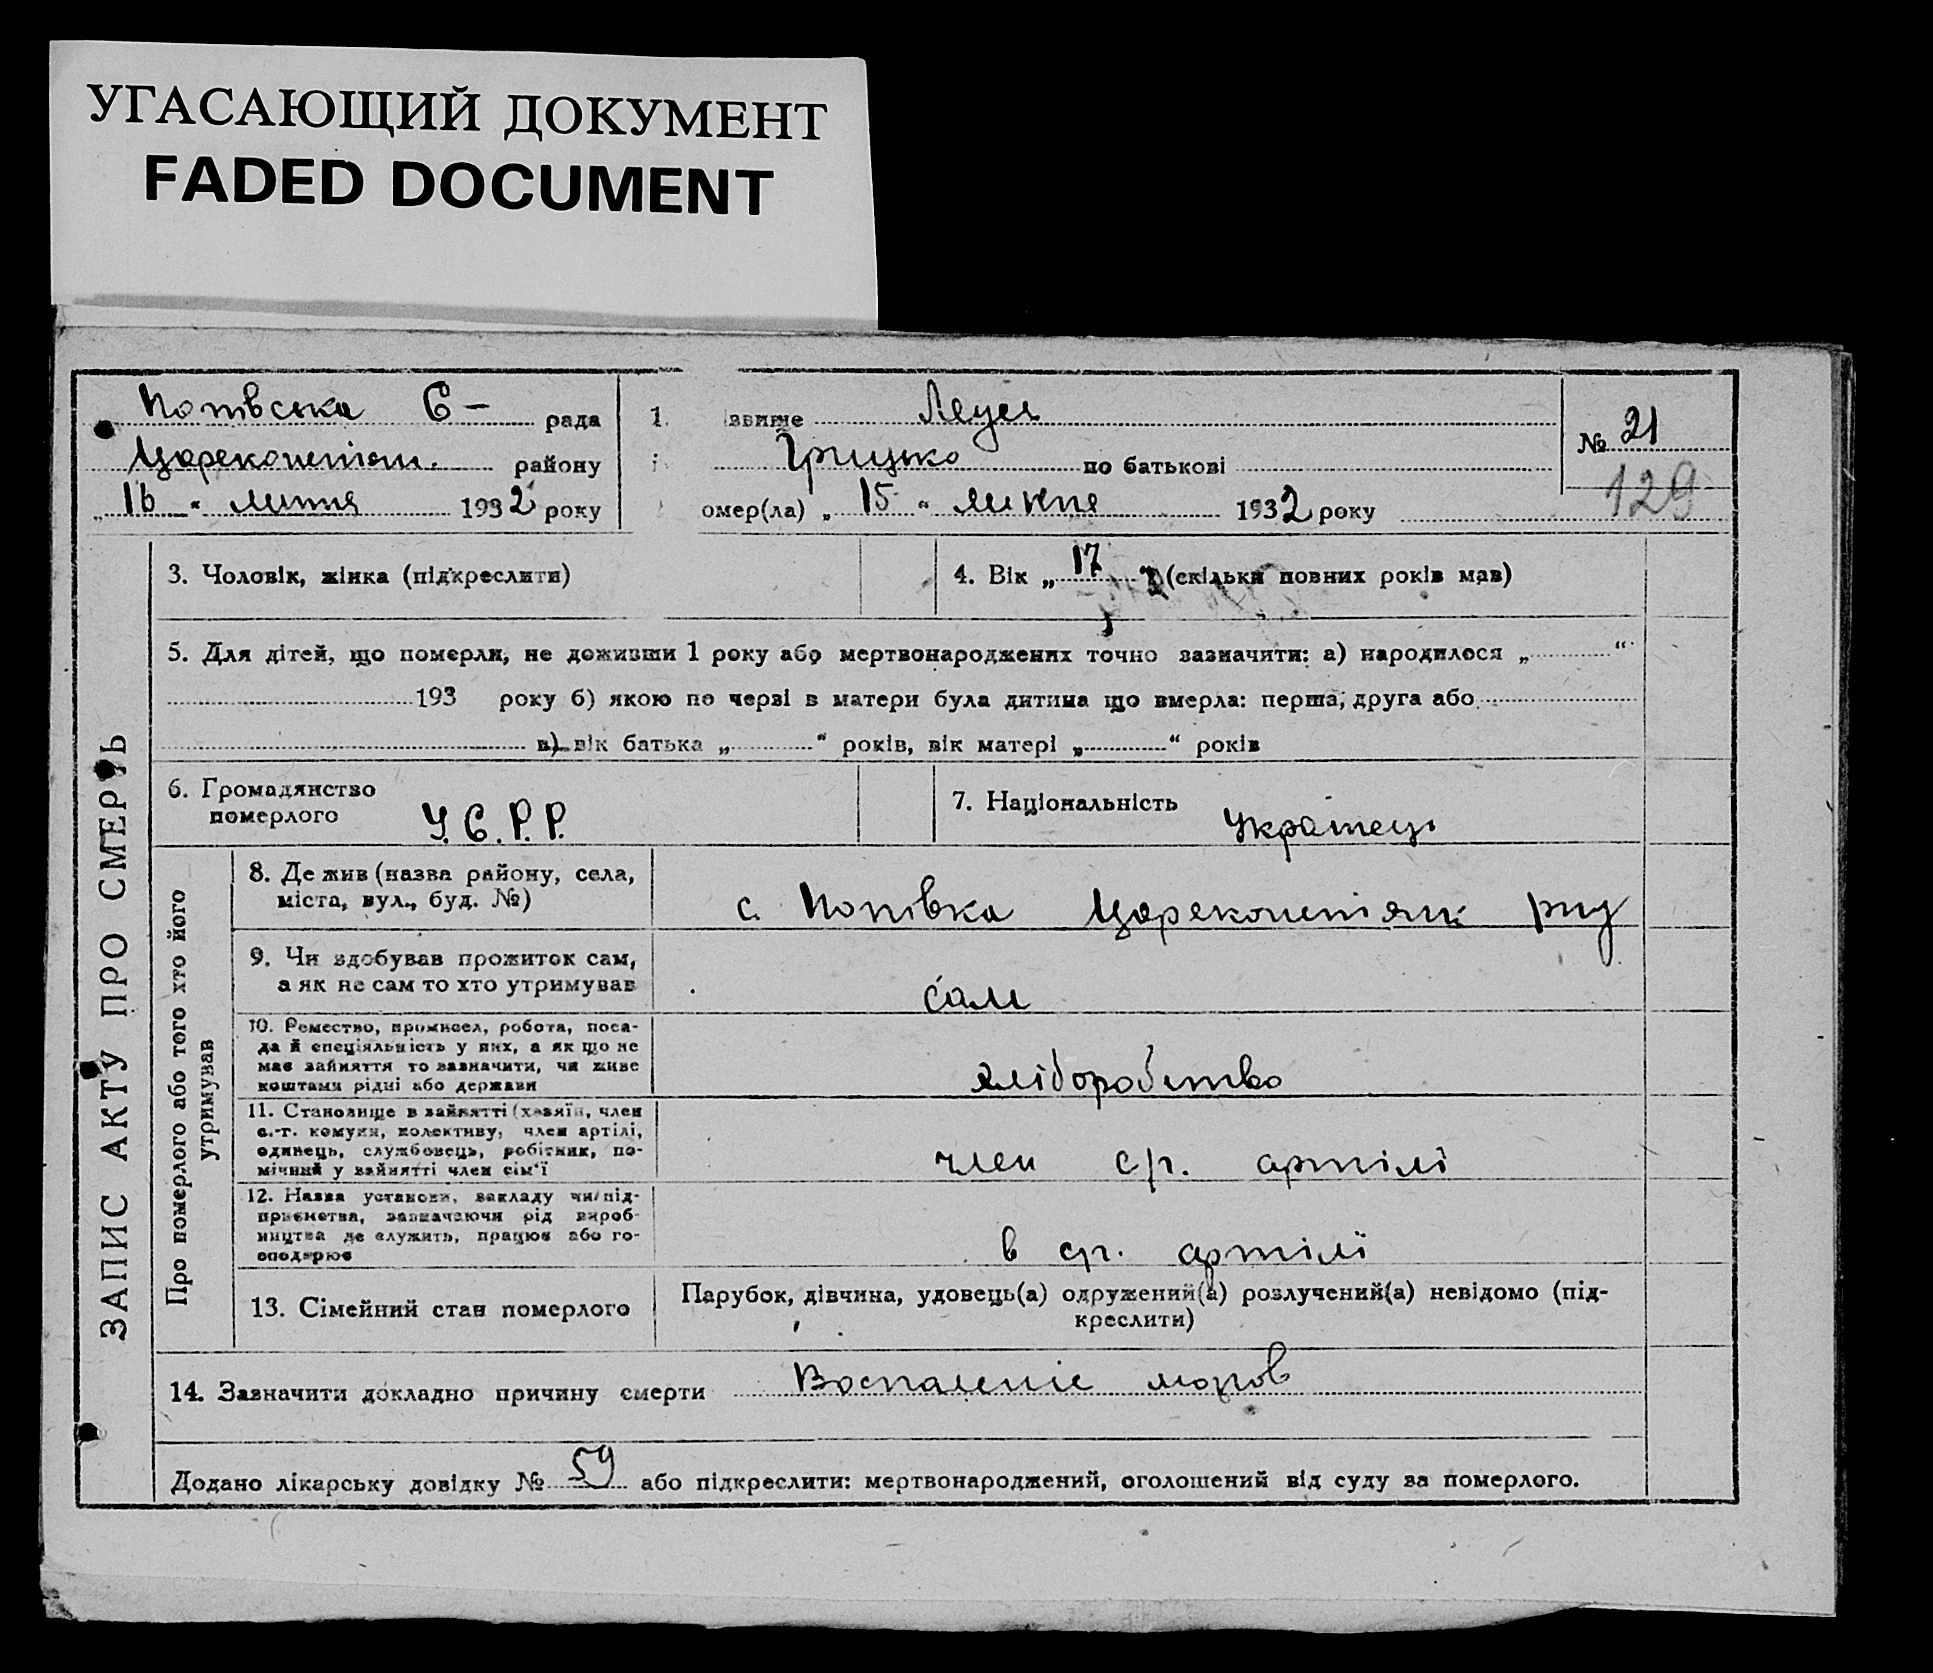 УГАСАЮЩИЙ ДОКУМЕНТ
FADED DOCUMENT
Попівська С- рада
Царекопстян. району
„16“ липня 1932 року
1. ізвище Леус
Грицько по батькові
омер(ла) „15“ липня 1932 року
№ 21
129
3. Чоловік, жінка (підкреслити)
4. Вік „17 (скільки повних років мав)
5. Для дітей, що померли, не доживши 1 року або мертвонароджених точно зазначити: а) народилося „ “
193 року б) якою по черзі в матери була дитина що вмерла: перша, друга або
в) вік батька „ “ років, вік матері „ “ років
6. Громадянство
померлого У.С.Р.Р.
7. Національність Українець
ЗАПИС АКТУ ПРО СМЕРТЬ
Про померлого або того хто його
утримував
8. Де жив (назва району, села,
міста, вул., буд. №)
с. Попівка Царекопстянк рну
9. Чи здобував прожиток сам,
а як не сам то хто утримував
сам
10. Ремество, промисел, робота, поса-
да й спеціяльність у них, а як що не
має зайняття то зазначити, чи живе
коштами рідні або держави
хліборобство
11. Становище в зайнятті (хазяїн, член
с.-г. комуни, колективу, член артілі,
одинець, службовець, робітник, по-
мічний у зайнятті член сім'ї
член с/г. артілі
12. Назва установи, закладу чи під-
приємства, зазначаючи рід вироб-
ництва де служить, працює або го-
сподарює
в с/г. артілі
13. Сімейний стан померлого
Парубок, дівчина, удовець(а) одружений(а) розлучений(а) невідомо (під-
креслити)
14. Зазначити докладно причину смерти Воспаленіє
Додано лікарську довідку № 59 або підкреслити: мертвонароджений, оголошений від суду за померлого.